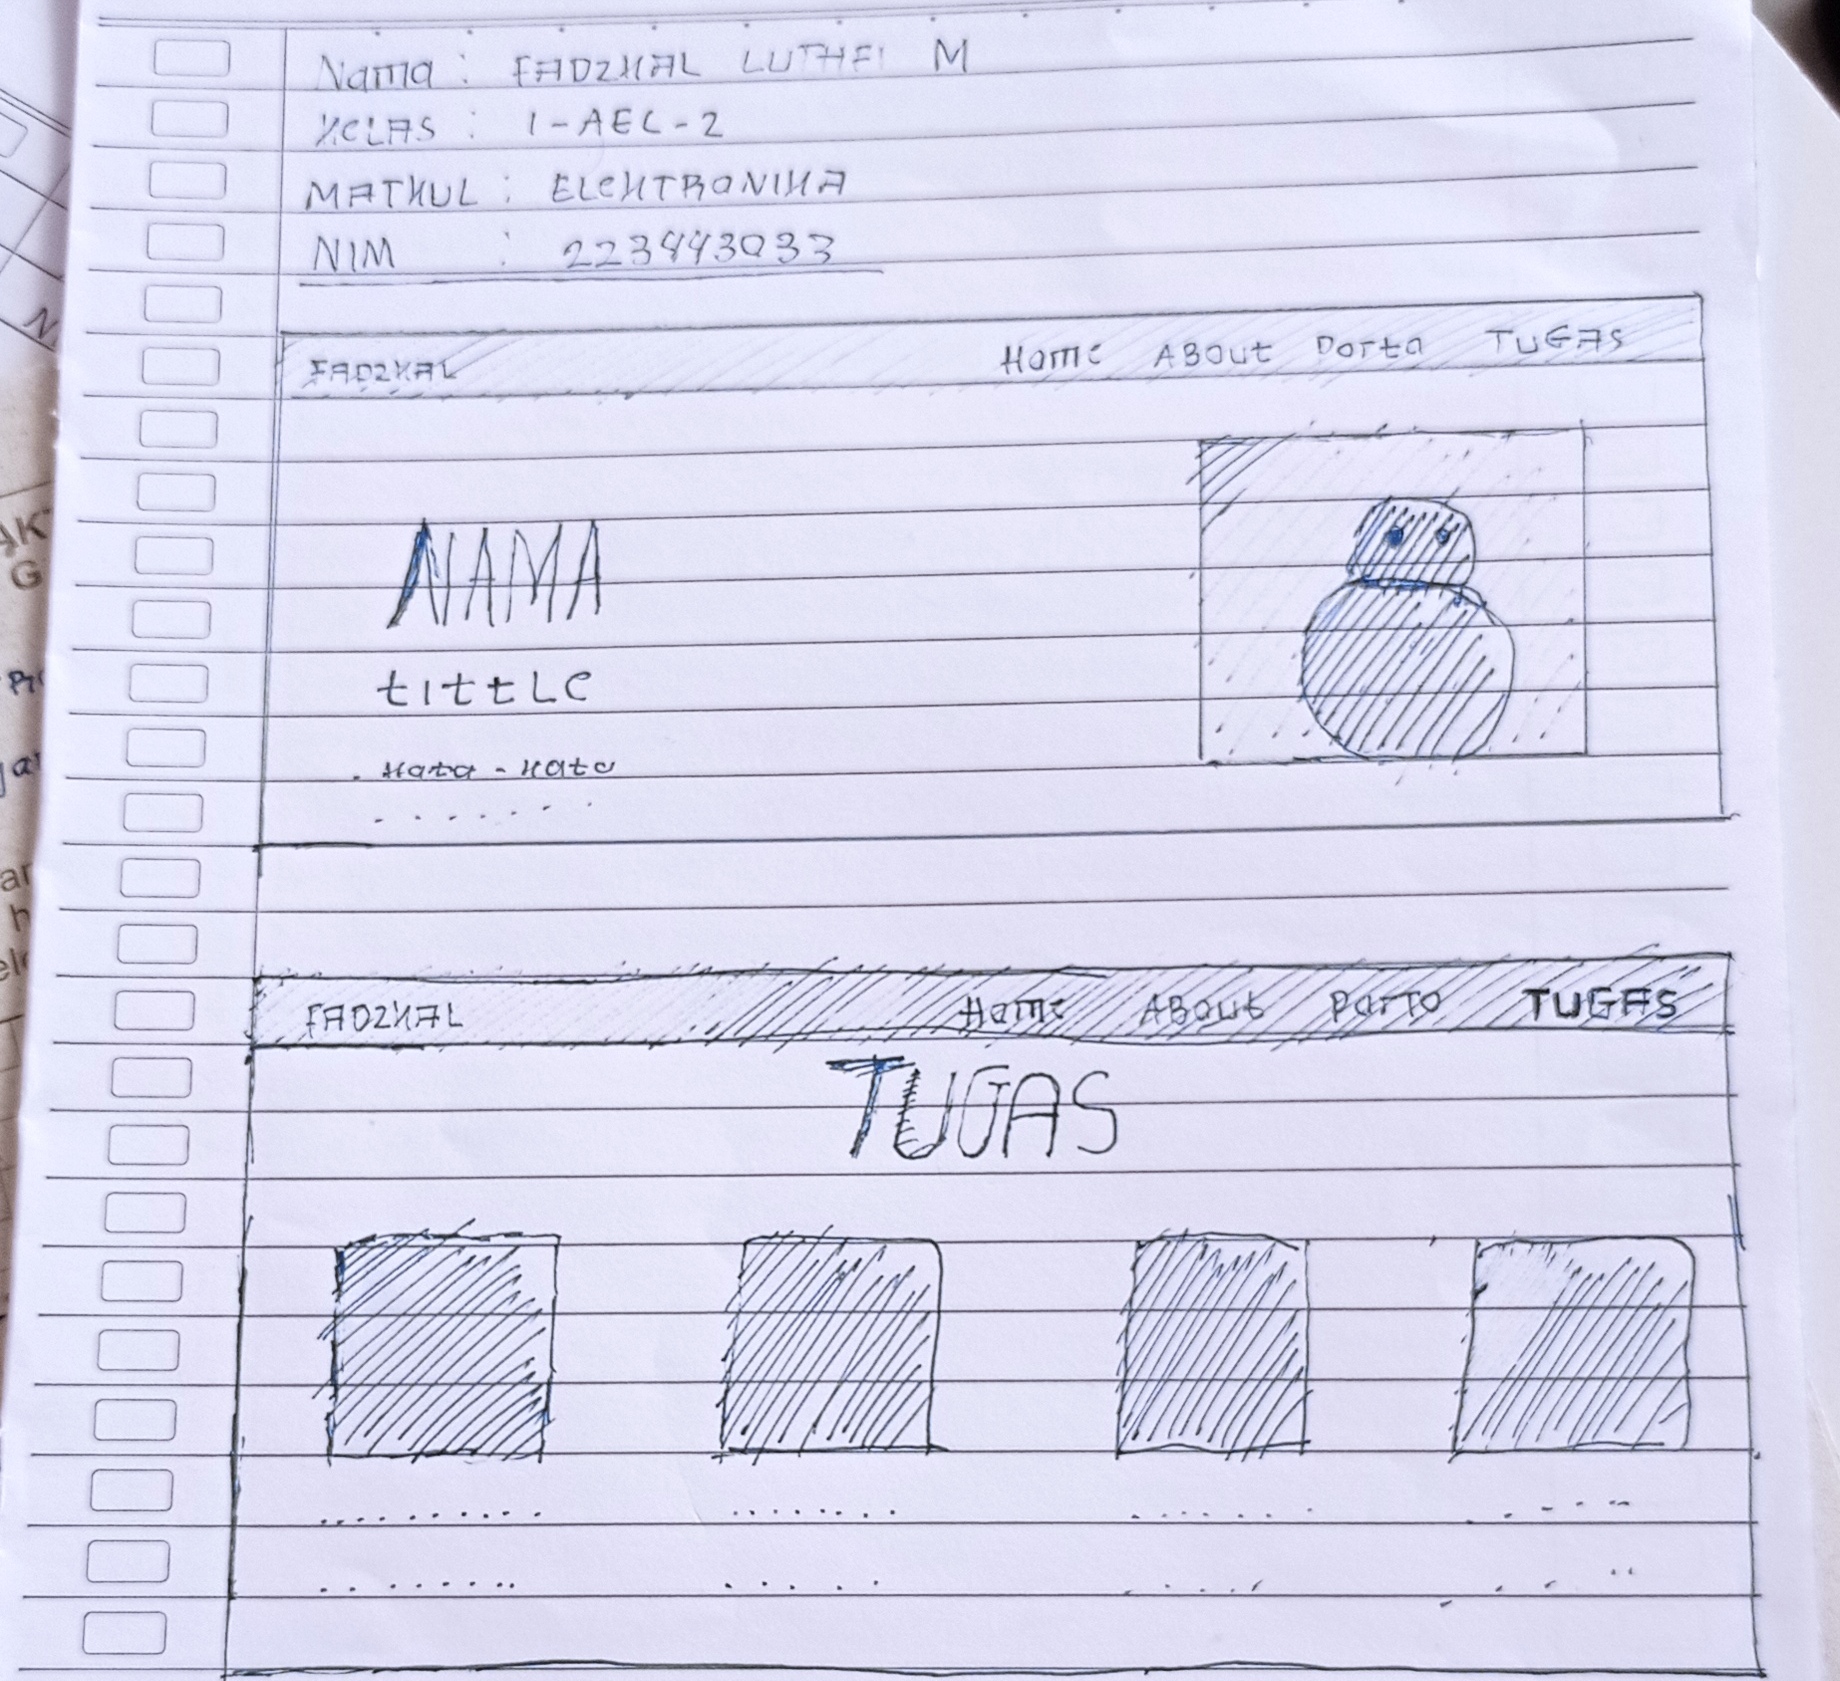 Nama : FADZKAL LUTHFI M
KELAS : 1-AEC-2
MATKUL : ELEKTRONIKA
NIM : 223443033
FADZKAL Home ABOut Porto TUGAS
NAMA
tittLe
Kata - Kata
FADZKAL Home ABout Porto TUGAS
TUGAS